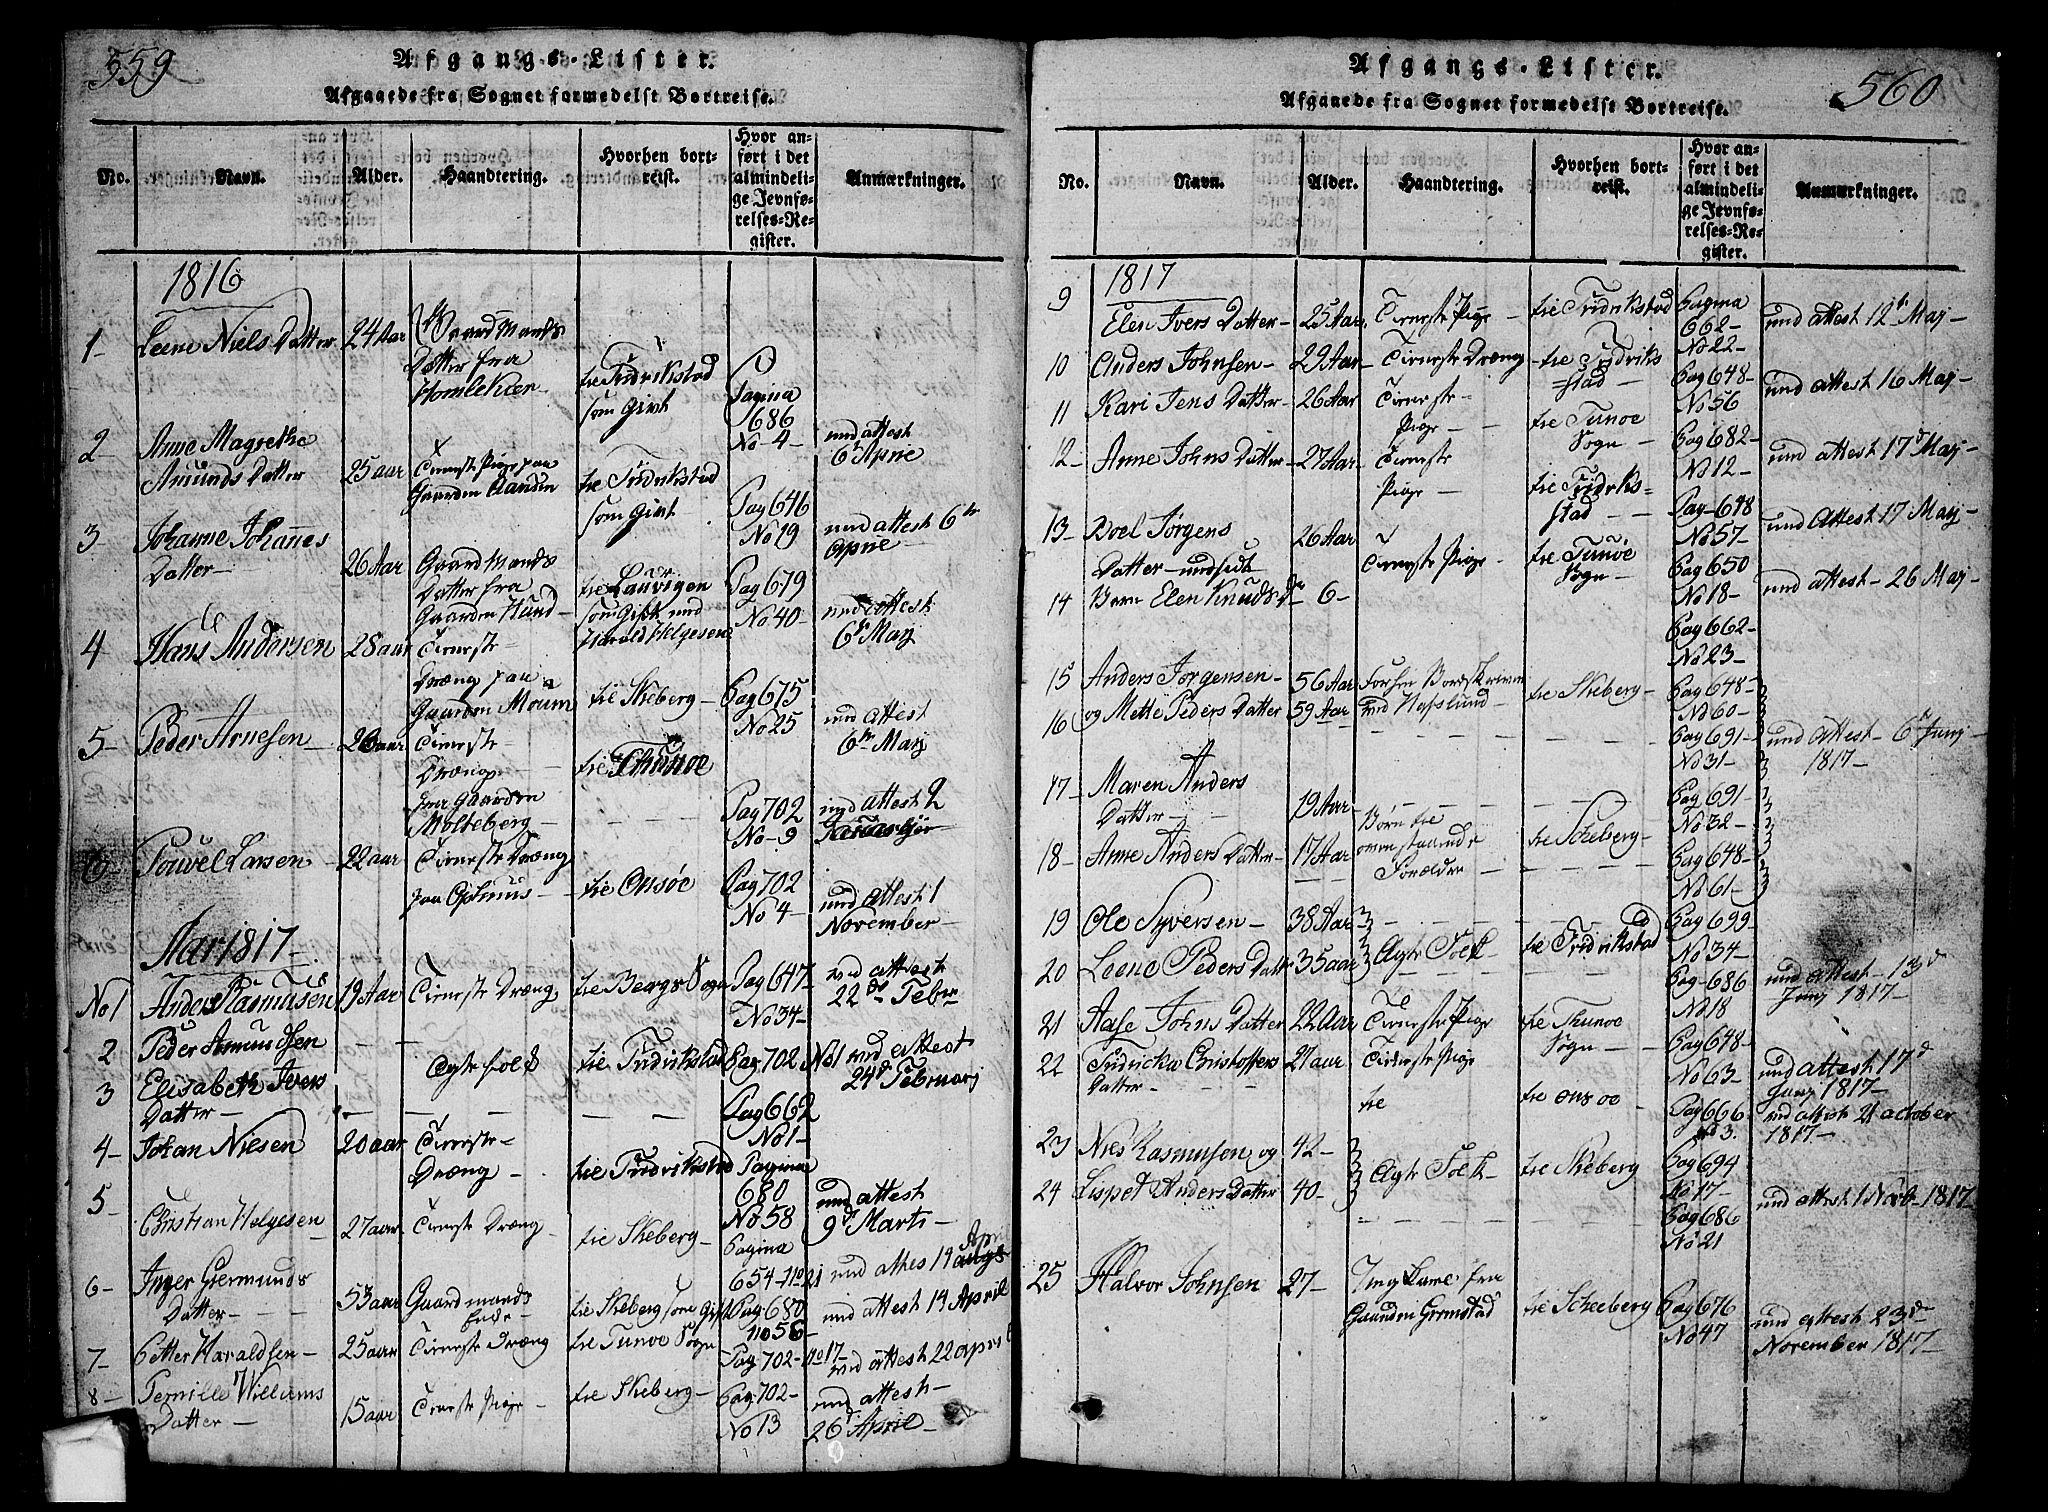 559
Afgangs-Lister.
Afgaaede fra Sognet formedelst Bortreise.
No. Navn. Alder. Haandtering. Hvorhen bortreist. Hvor anført i det almindelige Jevnførelses-Register. Anmærkninger.
1816
1- Leene Niels Datter 24 Aar Gaard Mands Datter fra Homlekiær til Fridrikstad som Givt Pagina 686 No 4-
2- Anne Magrethe Amunds Datter 25 aar Tieneste Pige paa Gaarden til Fridrikstad som Givt Pag 646 No 19 med attest 6te April
3 Johanne Johannes Datter 26 Aar Gaard Mands Datter fra Gaarden Hund til Laurvigen som Gift med Harald Helgesen Pag 679 No 40- med attest 6te April
4 Hans Andersen 28 aar Tieneste Dræng paa Gaarden Moum til Skeberg Pag 675 No 25 med attest 6te Maij
5- Peder Arnesen 26 aar Tieneste Dræng fra gaarden Molteberg til Thunoe Pag 702 No 9 med attest 6te Maij
6 Pouvel Larsen 22 aar Tieneste Dræng paa til Onsøe Pag 702 No 4- med attest 1 November
Aar 1817-
No 1 Anders Rasmusen 19 Aar Tieneste Dræng til Bergs Sogn Pag 647 No 34- med attest 22de Febr
2 Peder Amundsen - - Ægte folk til Fridrikstad Pag 702 No 1 med attest 24de Februarj
3 Elisabeth Ivers Datter - Pag 662 No 1-
4- Johan Nielsen 20 aar Tieneste Dræng til Fridrikstad Pagina 680 No 58 med attest 9de Marti
5 Christian Helgesen 27 aar Tieneste Dræng til Skeberg Pagina 654 - No 21 med attes 14 April
6- Inger Giermunds Datter 53 aar Gaardmands Enke til Skeberg som gift Pag 680 No 56- med attest 14 April
7- Petter Haraldsen 25 aar Tieneste Dræng til Tunoe Sogn Pag 702 - No 17 med attest 22 april
8 Pernille Willums Datter 15 aar Tieneste Pige til Skeberg Pag 702- No 13 med attest 26 April
560
Afgangs-Lister.
Afgaaede fra Sognet formedelst Bortreise.
No. Navn. Alder. Haandtering. Hvorhen bortreist. Hvor anført i det almindelige Jevnførelses-Register. Anmærkninger.
1817
9 Elen Ivers Datter 25 Aar Tieneste Pige til Fridrikstad Pagina 662- No 22- med attest 12te Maj
10 Anders Johnsen 29 Aar Tieneste Dræng til Fridrikstad Pag 648- No 56 med attest 16 Maj
11 Kari Jens Datter 26 Aar Tieneste Pige til Tunoe Sogn Pag 682- No 12- med attest 17de Maj
12- Anne Johns Datter 27 Aar Tieneste Pige til Fridrikstad Pag 648 No 57- med Attest 17 Maj
13- Boel Jørgens Datter 26 Aar Tieneste Pige til Tunøe Sogn Pag 650 No 18- med attest 26 Maj
14 Barn Elen Knuds Dr 6- Pag 662- No 23-
15 Anders Jørgensen 56 Aar ved Hafslund til Skeberg Pag 648- No 60-
16 og Mette Peders Datter 59 Aar Pag 691- No 31- med attest 6te Junj 1817-
17- Maren Anders Datter 19 Aar Pag 691- No 32-
18- Anne Anders Datter 17 Aar Børn til ovenstaaende Forældre til Skeberg Pag 648- No 61-
19 Ole Syversen 38 Aar Pag 699 No 34-
20 Leene Peders Datter 35 aar Ægte Folk til Fridrikstad Pag 686 No 18 med attest 13de Junj 1817-
21 Aase Johns Datter 22 Aar Tieneste Pige til Thunoe Sogn Pag 648- No 63- med attest 17de Junj 1817-
22 Fridricka Christoffers Datter 21 aar Tieneste Pige til ons oe Pag 666 No 3. med attest 21 october 1817-
23 Niels Rasmusen og 42- Ægte Folk til Skeberg Pag 694 No 17-
24 Lispet Anders Datter 40- Pag 686 No 21 med attest 1 Novb 1817-
25 Halvor Johnsen 27- fra Gaarden Grimstad til Scheeberg Pag 676 No 47 med attest 23de November 1817-